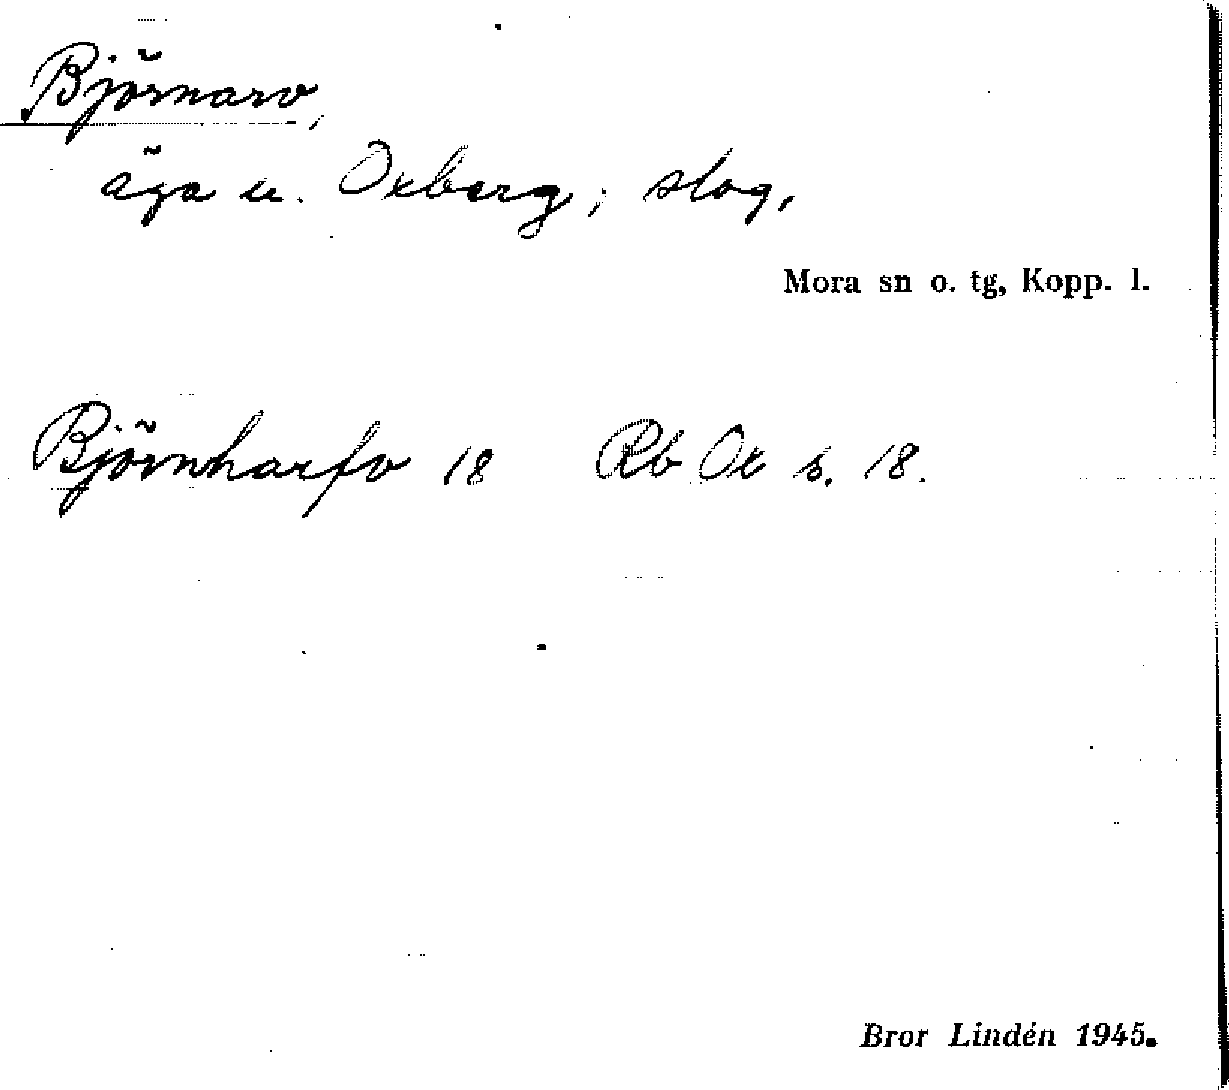 Björnarv,
äga u. Oxberg; slog,
Mora sn o. tg, Kopp. l.
Björnharfv 18 Rb Ox s. 18.
Bror Lindén 1945.